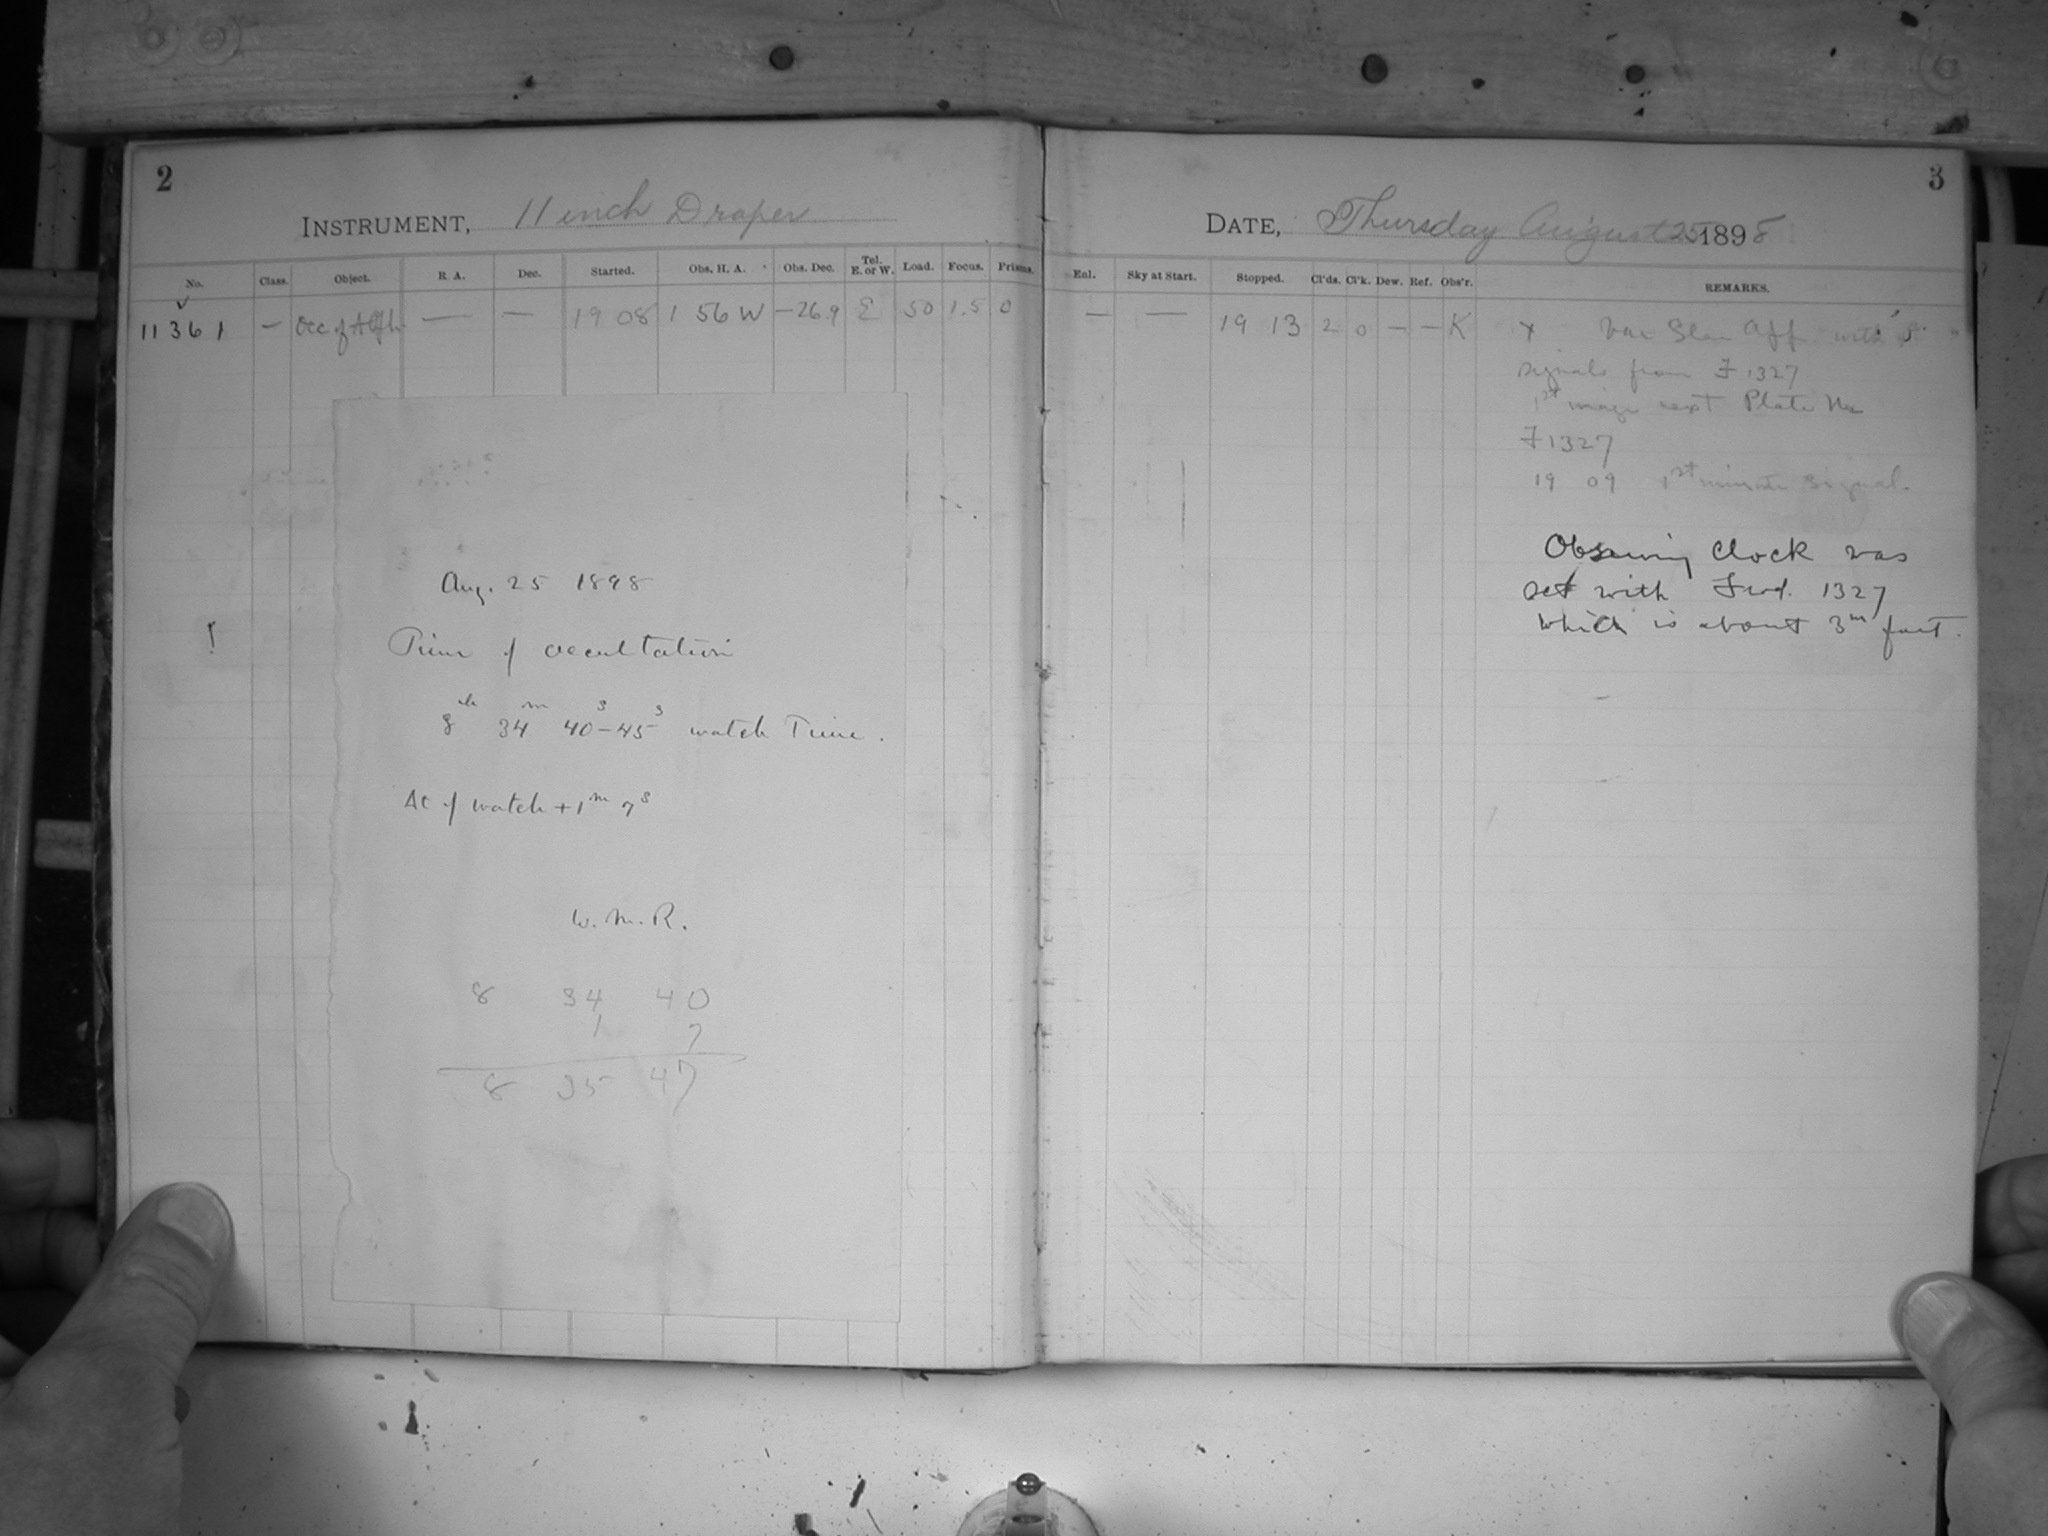 2
INSTRUMENT, 11 inch Draper
No. Class. Object. R. A. Dec. Started. Obs. H. A. Obs. Dec. Tel. E. or W. Load. Focus. Prisms.
11361 — Occ of — — 19 08 1 56 W −26.9 E 50 1.5 0
Aug. 25 1898
Time of occultation
8h 34m 40s–45s watch Time.
At of watch + 1m 7s
W. M. R.
8 34 40
1 7
8 35 47
3
DATE, Thursday August 25 1898
Enl. Sky at Start. Stopped. Cl'ds. Cl'k. Dew. Ref. Obs'r. REMARKS.
— — 19 13 2 0 — — K x Var Slan App. with
signals from F 1327
1st image next Plate No
F 1327
19 09 1st minute signal
Observing Clock was
set with Frod. 1327
which is about 3m fast.